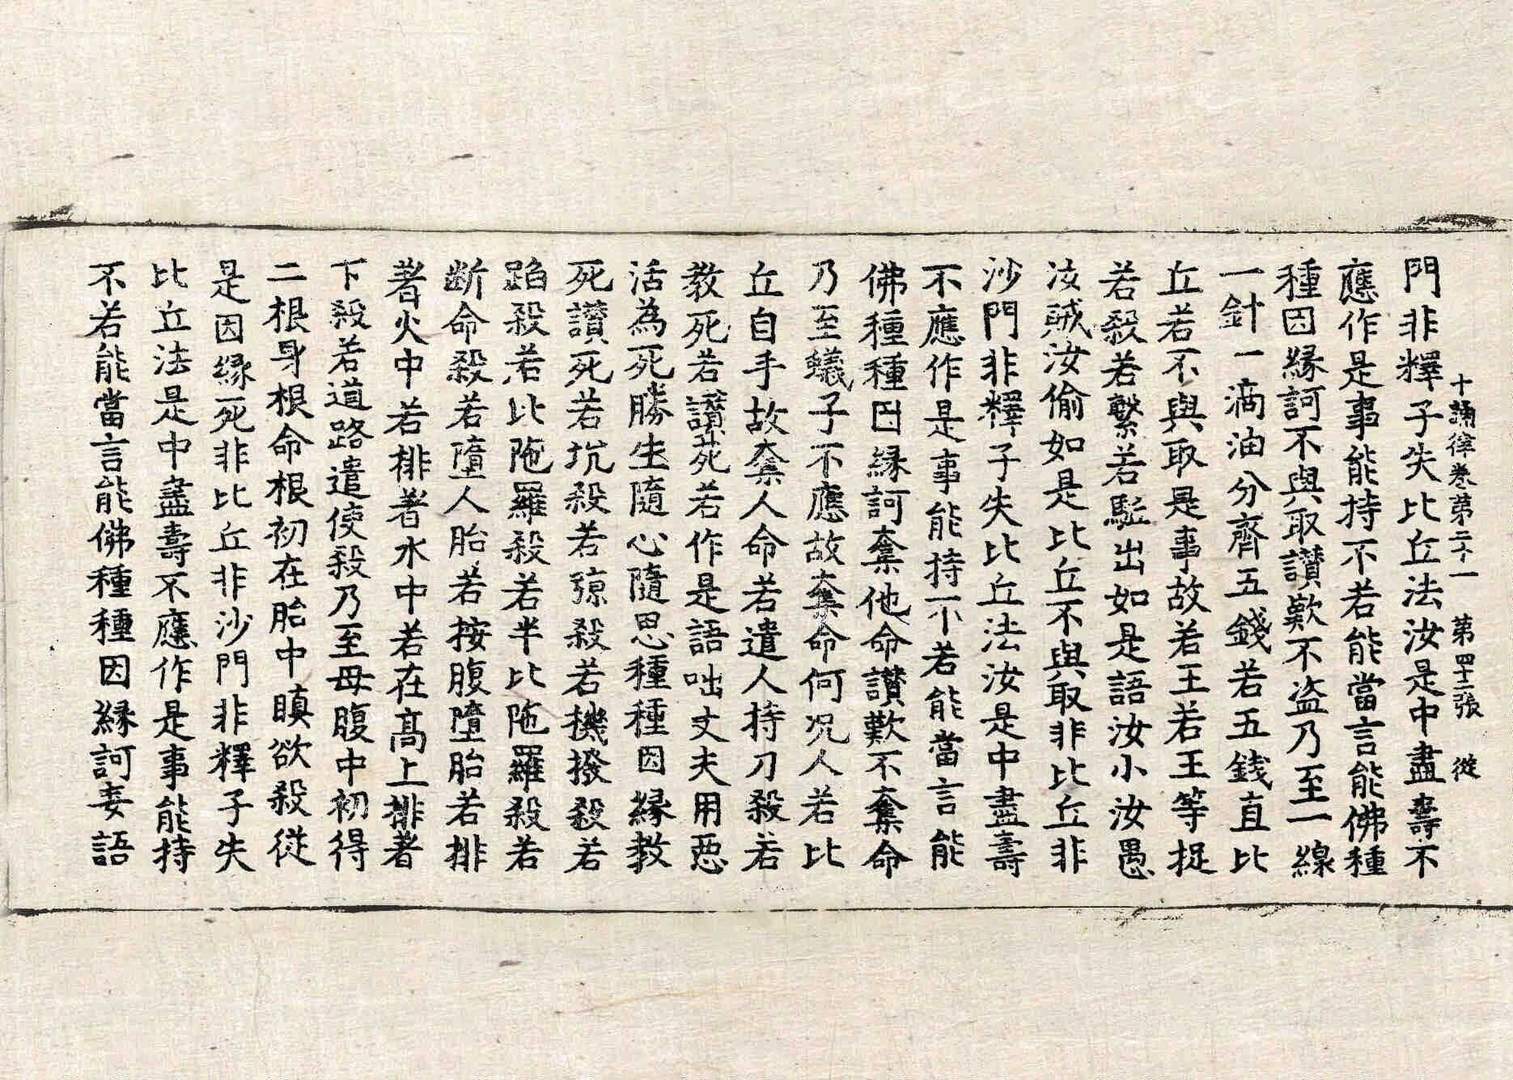 十誦律卷第二十一　第四十二張　從
門非釋子失比丘法汝是中盡壽不
應作是事能持不若能當言能佛種
種因緣訶不與取讃歎不盜乃至一線
一針一滴油分齊五錢若五錢直比
丘若不與取是事故若王若王等捉
若殺若繫若駈出如是語汝小汝愚
汝賊汝偷如是比丘不與取非比丘非
沙門非釋子失比丘法汝是中盡壽
不應作是事能持不若能當言能
佛種種因緣訶奪他命讃歎不奪命
乃至蟻子不應故奪命何况人若比
丘自手故奪人命若遣人持刀殺若
教死若讃死若作是語咄丈夫用惡
活為死勝生隨心隨思種種因緣教
死讃死若坑殺若弶殺若機撥殺若
蹈殺若比陁羅殺若半比陁羅殺若
断命殺若墮人胎若按腹墮胎若排
著火中若排著水中若在髙上排著
下殺若道路遣使殺乃至母腹中初得
二根身根命根初在胎中瞋欲殺從
是因緣死非比丘非沙門非釋子失
比丘法是中盡壽不應作是事能持
不若能當言能佛種種因緣訶妄語